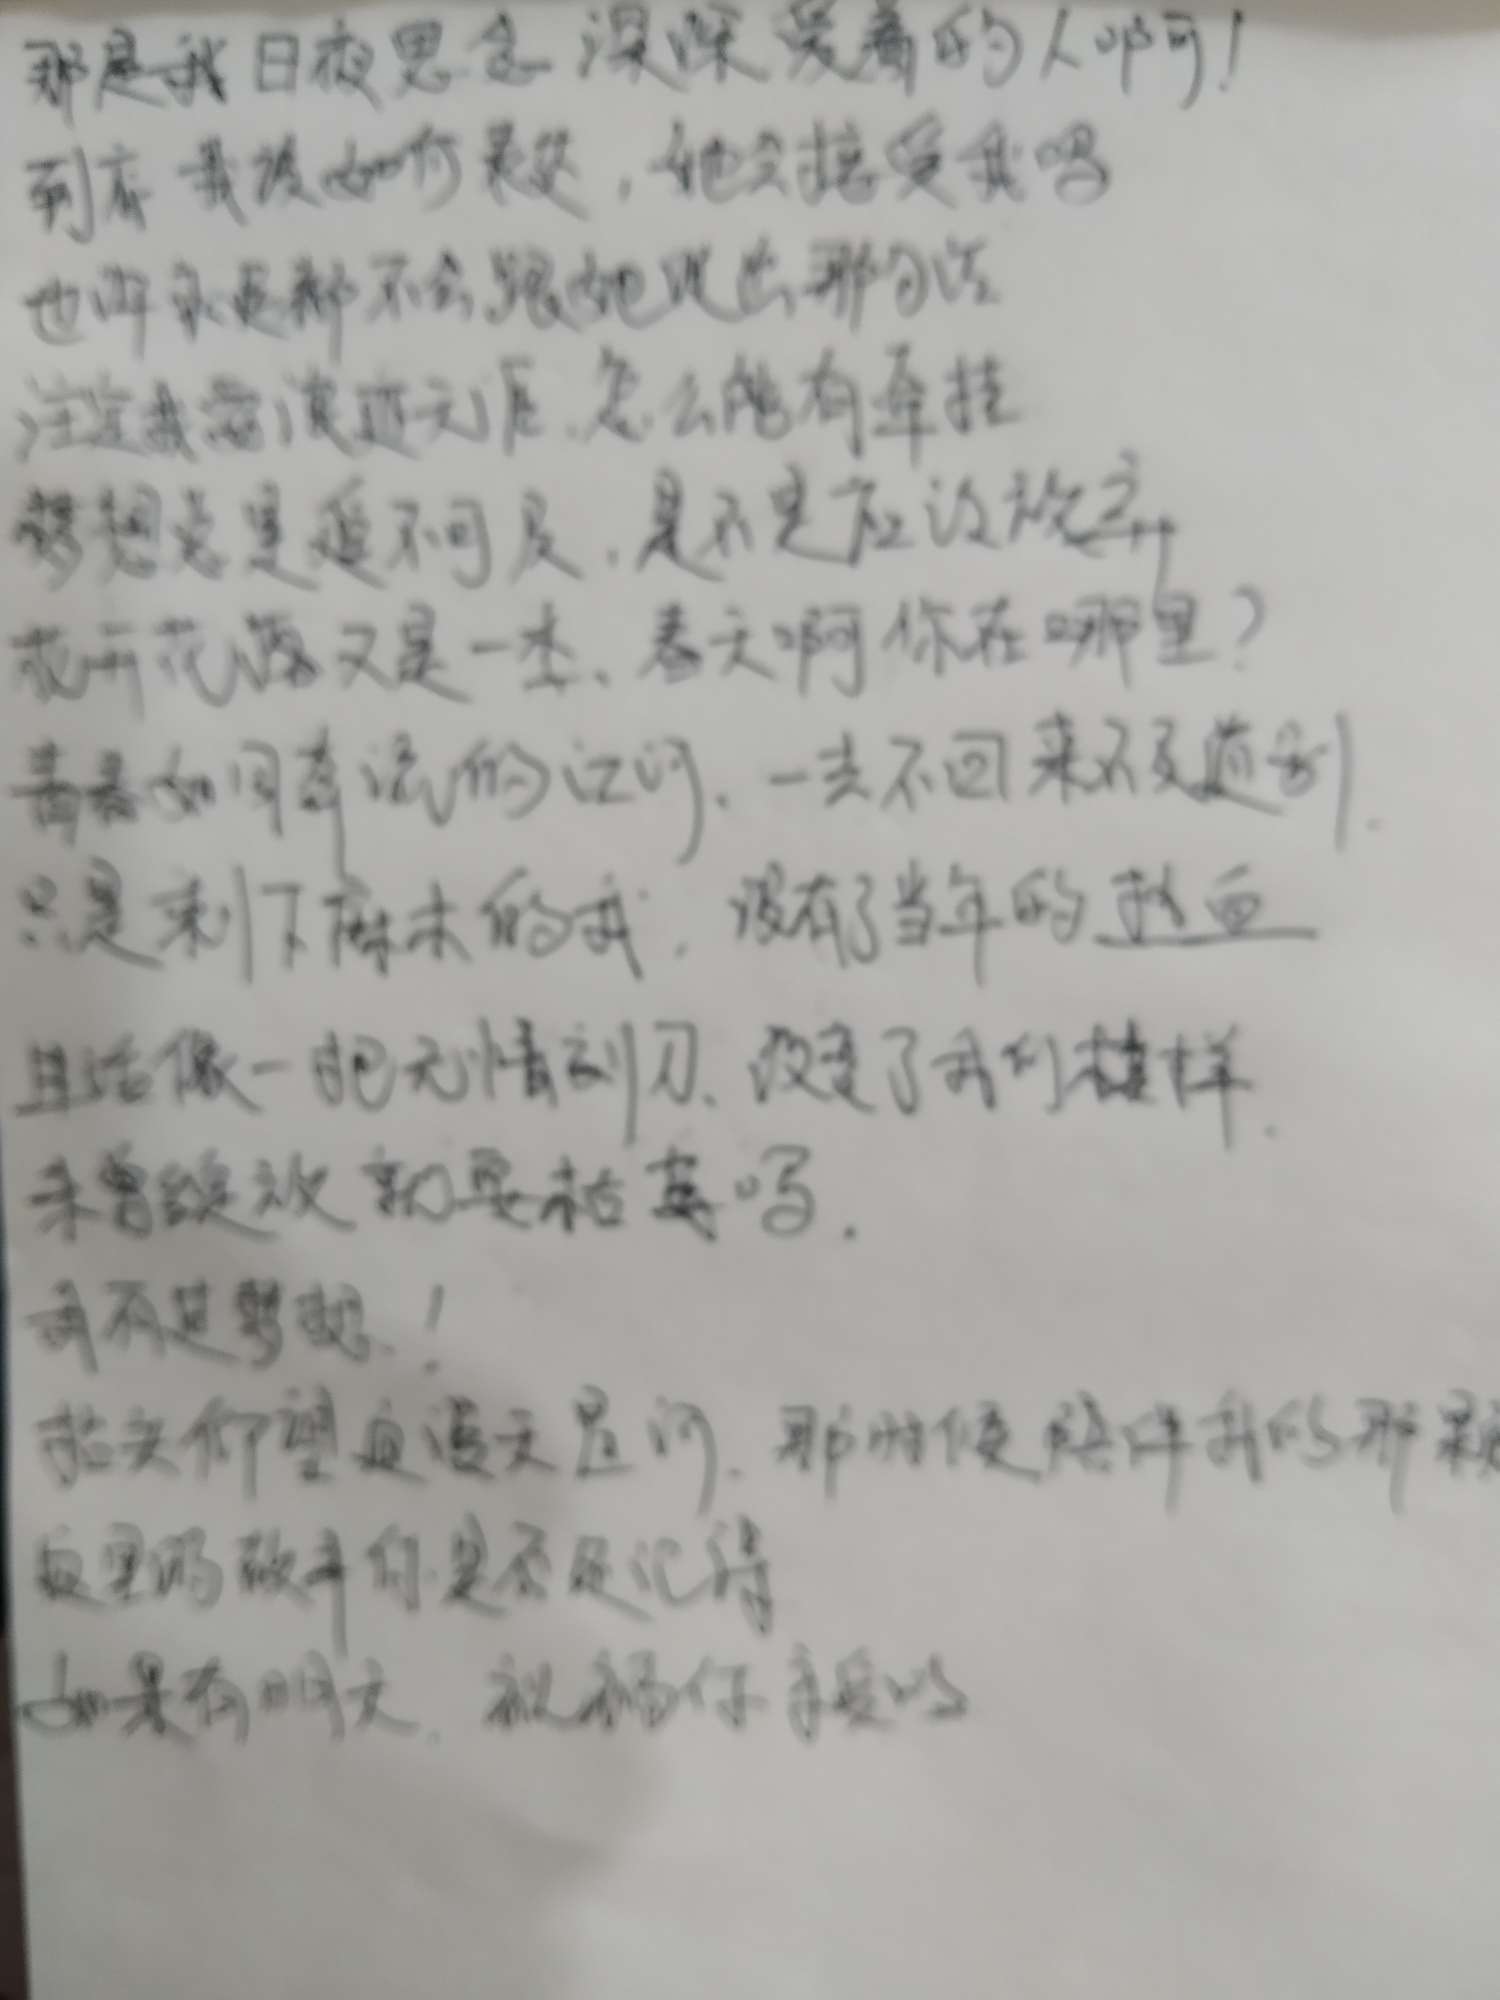 那是我日夜思念深深爱着的人啊！
到底我该如何表达，她会接受我吗
也许永远都不会跟她说出那句话
注定我要浪迹天涯、怎么能有牵挂
梦想总是遥不可及，是不是应该放弃
花开花落又是一季、春天啊你在哪里？
青春如同奔流的江河、一去不回来不及道别.
只是剩下麻木的我，没有了当年的热血
生活像一把无情刻刀、改变了我们模样.
未曾绽放就要枯萎吗.
我有过梦想！
抬头仰望着满天星河、那时候陪伴我的那颗
这里的故事你是否还记得
如果有明天、祝福你亲爱的